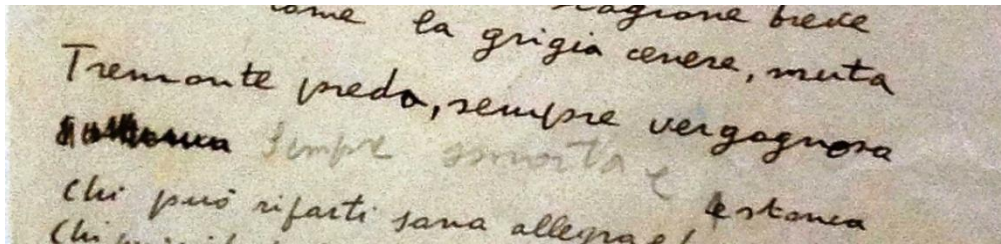 come la stagione breve
la grigia cenere, muta
Tremante preda, sempre vergognosa
sempre smorta e stanca
Chi può rifarti sana allegra e
Chi